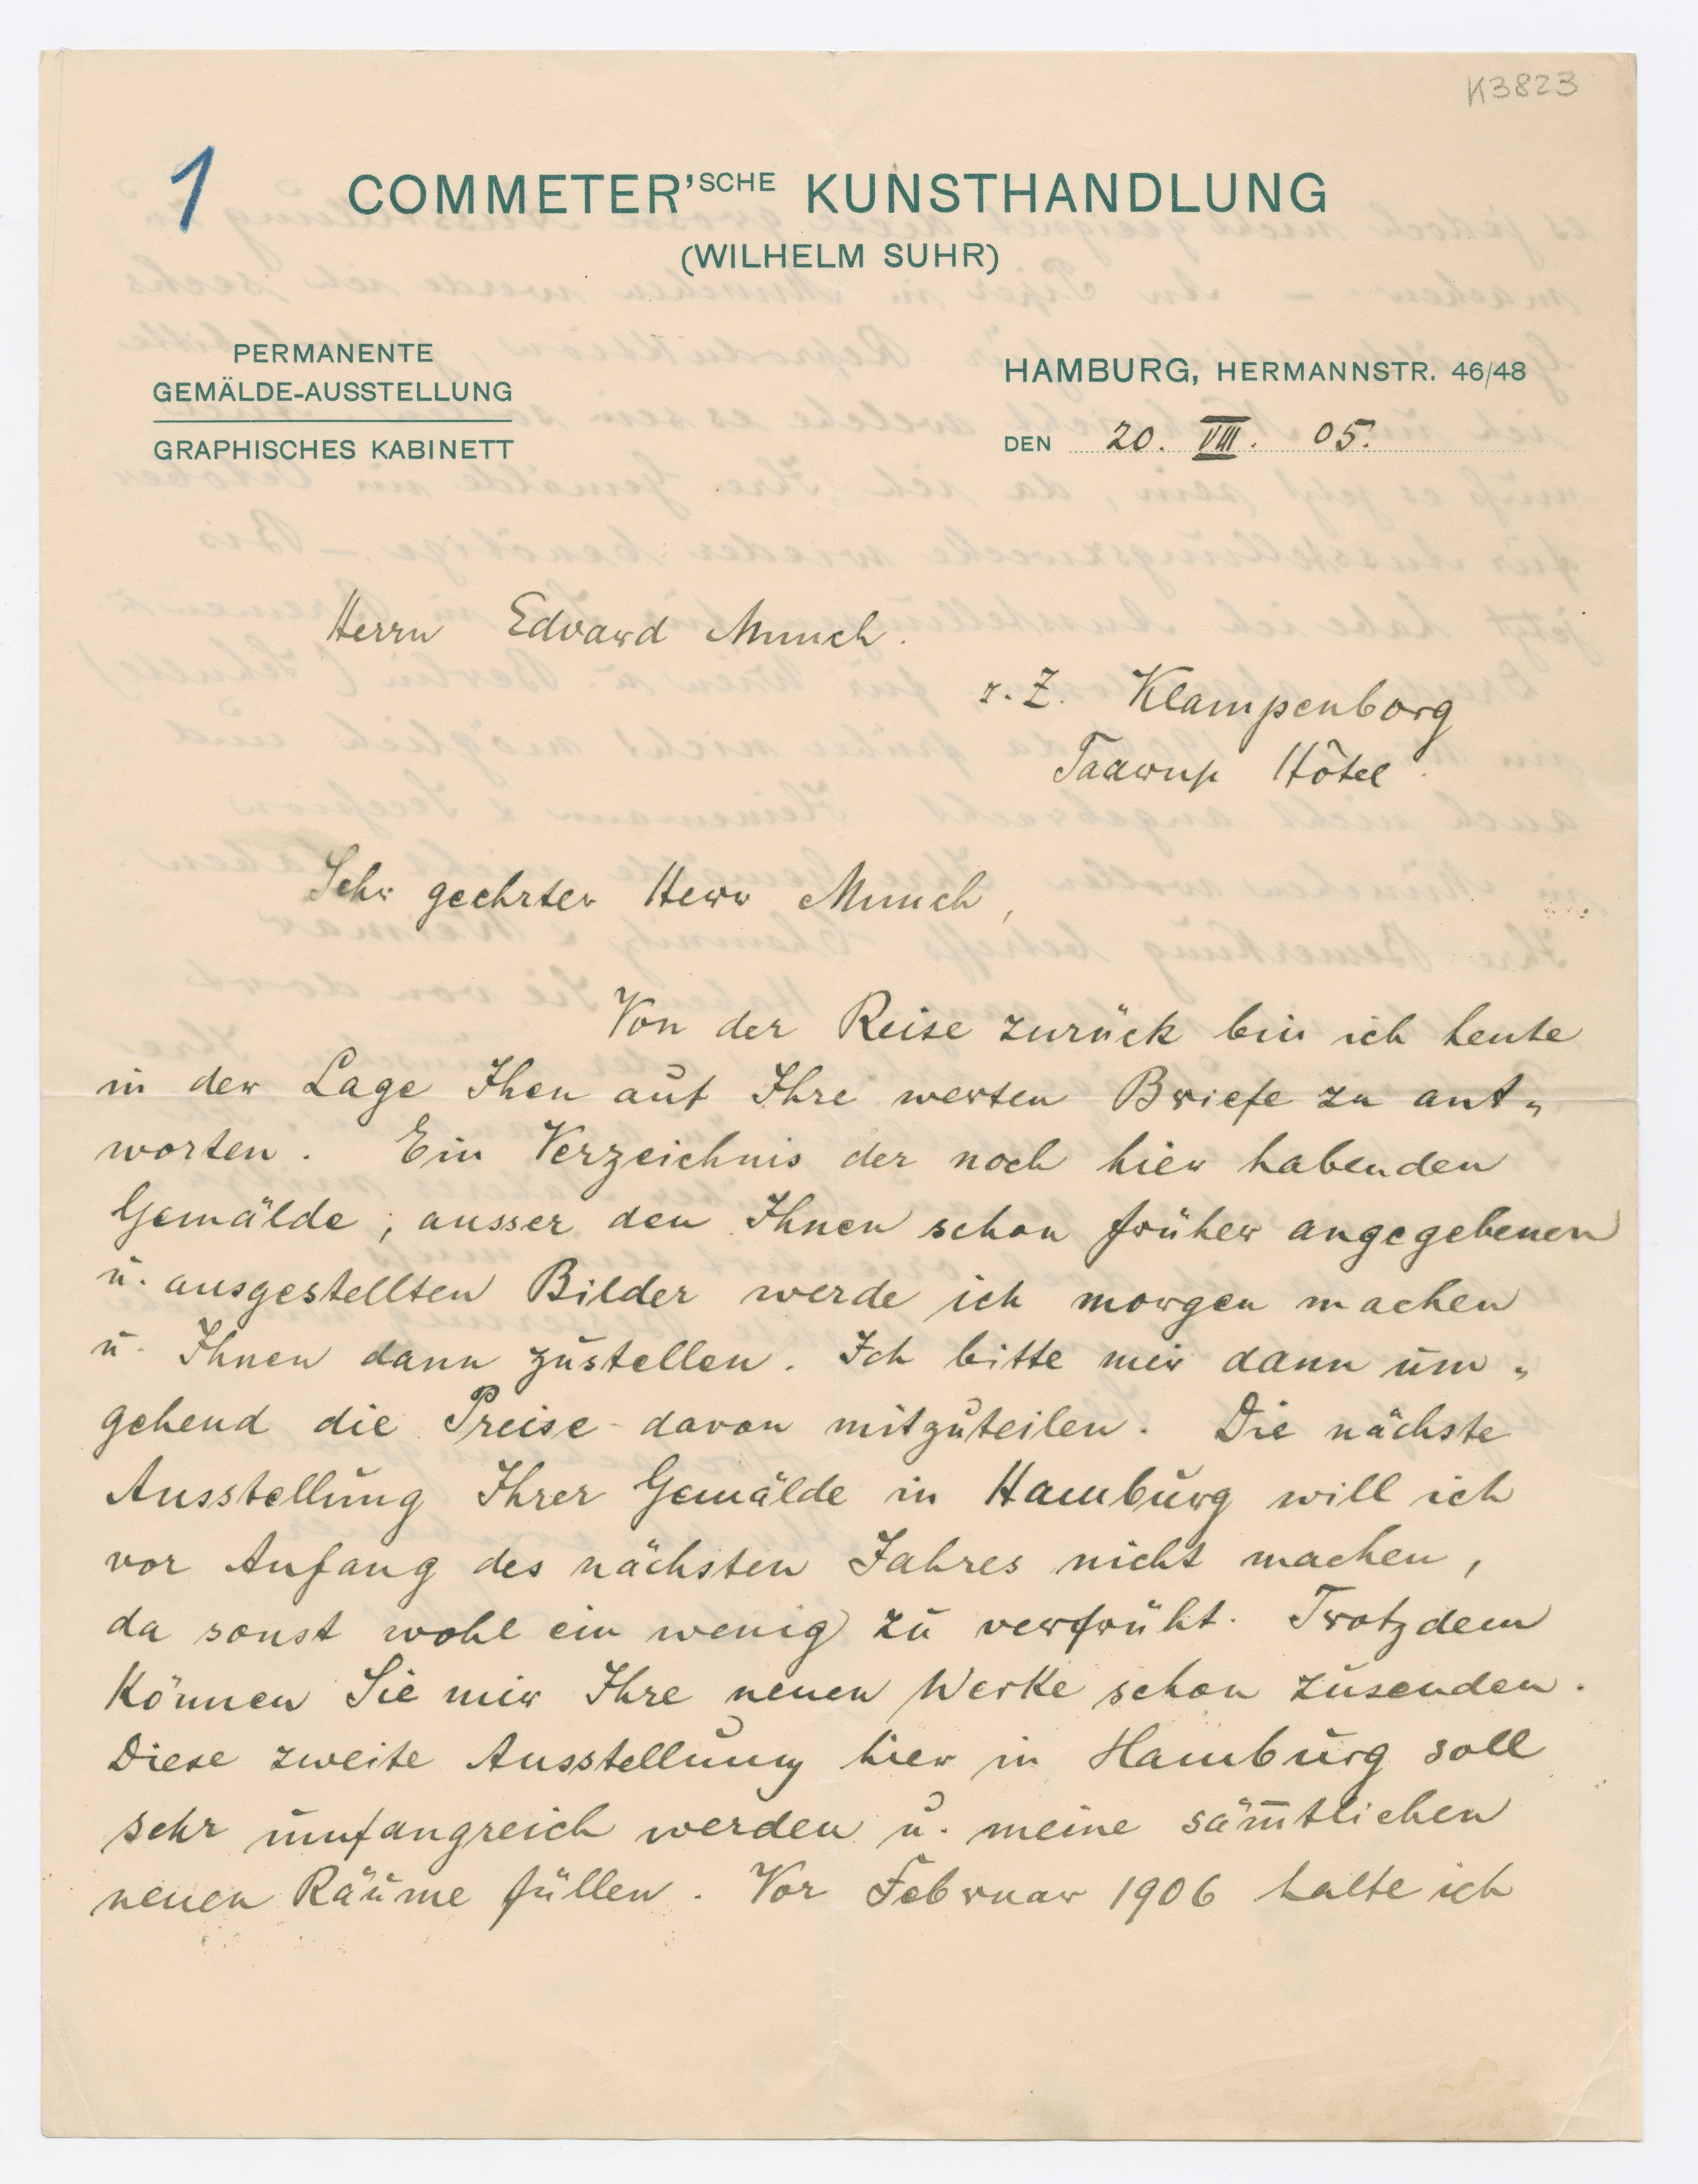 K3823
1
COMMETER'SCHE KUNSTHANDLUNG
(WILHELM SUHR)
PERMANENTE
GEMÄLDE-AUSSTELLUNG
GRAPHISCHES KABINETT
HAMBURG, HERMANNSTR. 46/48
DEN 20. VIII. 05.
Herrn Edvard Munch.
z. Z. Klampenborg
Taarup Hôtel.
Sehr geehrter Herr Munch,
Von der Reise zurück bin ich heute
in der Lage Ihen auf Ihre werten Briefe zu ant„
worten. Ein Verzeichnis der noch hier habenden
Gemälde, ausser den Ihnen schon früher angegebenen
u. ausgestellten Bilder werde ich morgen machen
u. Ihnen dann zustellen. Ich bitte mir dann um„
gehend die Preise davon mitzuteilen. Die nächste
Ausstellung Ihrer Gemälde in Hamburg will ich
vor Anfang des nächsten Jahres nicht machen,
da sonst wohl ein wenig zu verfrüht. Trotzdem
können Sie mir Ihre neuen Werke schon zusenden.
Diese zweite Ausstellung hier in Hamburg soll
sehr umfangreich werden u. meine säm̅tlichen
neuen Räume füllen. Vor Februar 1906 halte ich